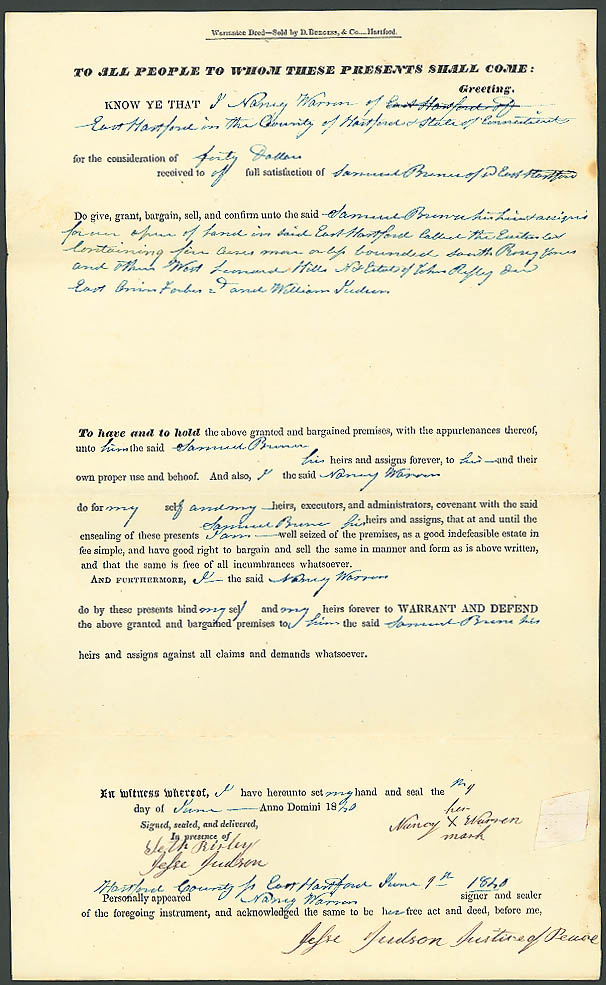 Warrantee Deed—Sold by D. Burgess, & Co.....Hartford.
TO ALL PEOPLE TO WHOM THESE PRESENTS SHALL COME:
Greeting.
KNOW YE THAT I Nancy Warren of East Hartford
East Hartford in the County of Hartford & State of Connecticut
for the consideration of forty Dollars
received to of full satisfaction of Samuel of East Hartford
Do give, grant, bargain, sell, and confirm unto the said Samuel his heirs & assigns
forever a of Land in said East Hartford Called the
Containing five acres more or less bounded South
and others West Leonard Hills Nth Estate of John
East and William Judson
To have and to hold the above granted and bargained premises, with the appurtenances thereof,
unto him the said Samuel
his heirs and assigns forever, to his and their
own proper use and behoof. And also, I the said Nancy Warren
do for my self and my heirs, executors, and administrators, covenant with the said
Samuel his heirs and assigns, that at and until the
ensealing of these presents I am well seized of the premises, as a good indefeasible estate in
fee simple, and have good right to bargain and sell the same in manner and form as is above written,
and that the same is free of all incumbrances whatsoever.
AND FURTHERMORE, I the said Nancy Warren
do by these presents bind my self and my heirs forever to WARRANT AND DEFEND
the above granted and bargained premises to him the said Samuel his
heirs and assigns against all claims and demands whatsoever.
In witness whereof, I have hereunto set my hand and seal the
day of June Anno Domini 1840
Signed, sealed, and delivered,
In presence of
her
Nancy X Warren
mark
Seth Risley
Jesse Judson
Hartford County ss East Hartford June 9th 1840
Personally appeared Nancy Warren signer and sealer
of the foregoing instrument, and acknowledged the same to be her free act and deed, before me,
Jesse Judson Justice of Peace